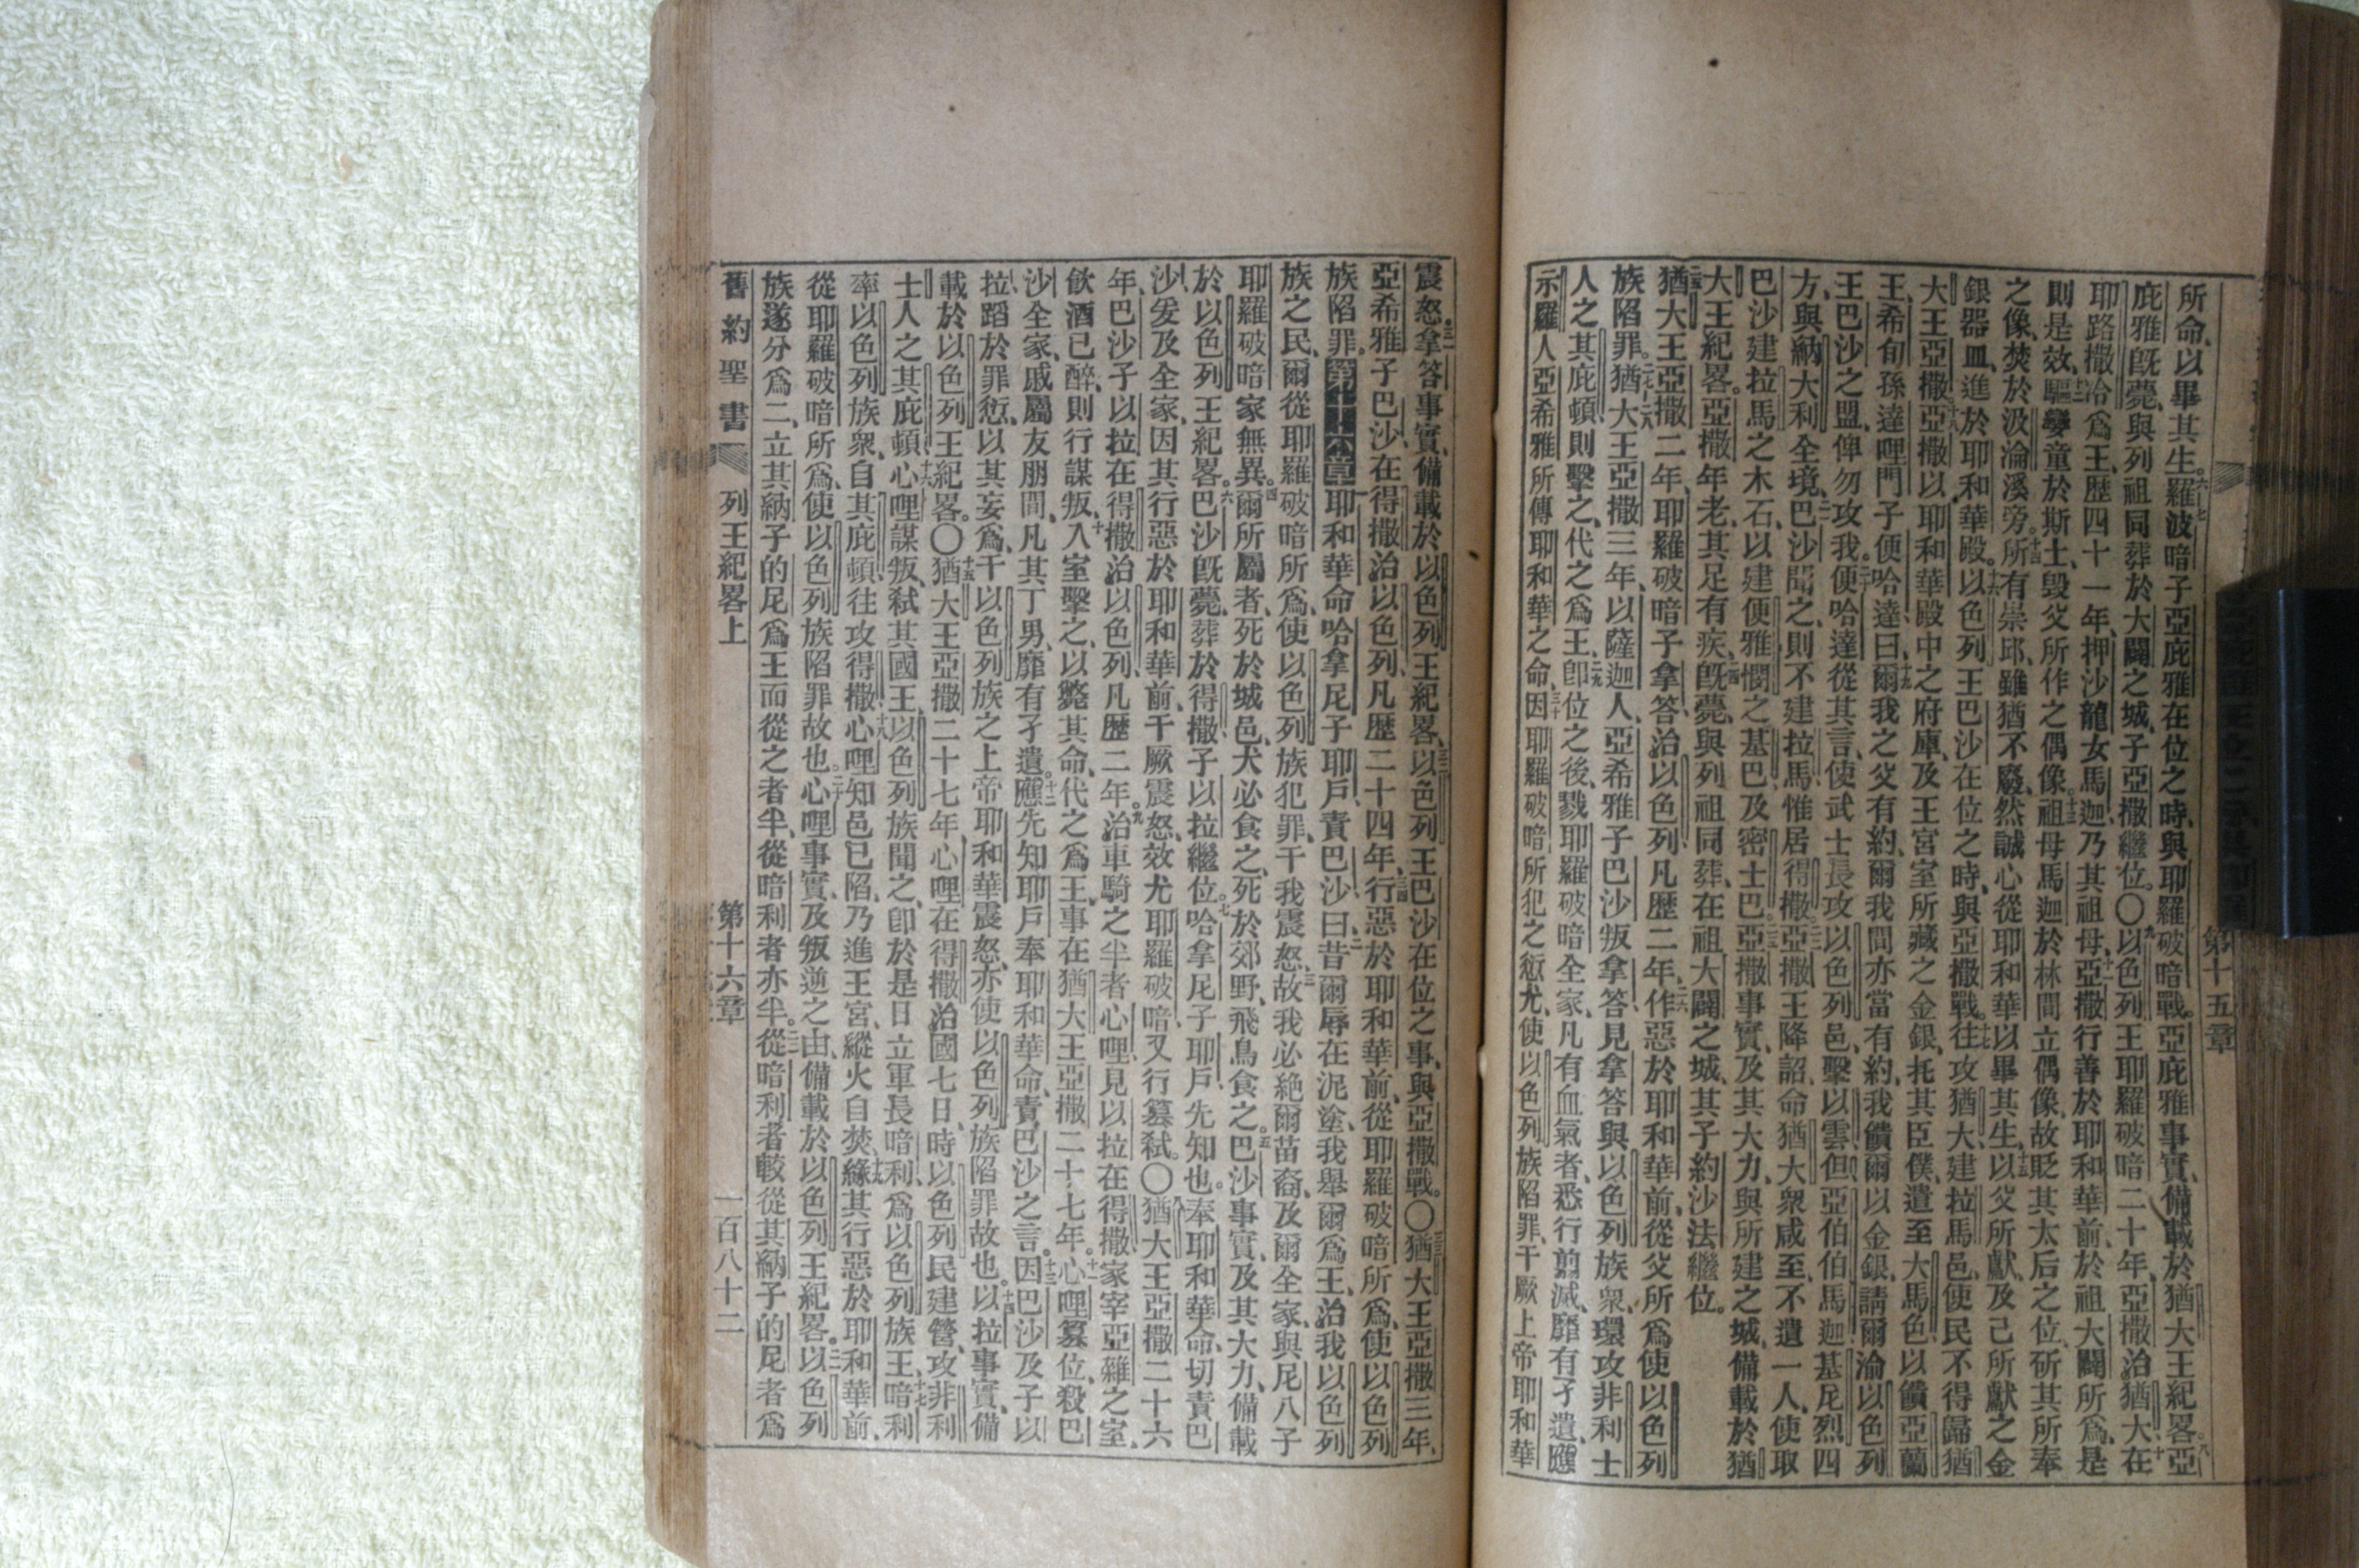 第十五章
所命、以畢其生。羅波暗子亞庇雅在位之時、與耶羅破暗戰。亞庇雅事實、備載於猶大王紀畧。亞
庇雅旣薨、與列祖同葬於大闢之城、子亞撒繼位。〇以色列王耶羅破暗二十年、亞撒治猶大、在
耶路撒冷爲王、歷四十一年、押沙龍女馬迦乃其祖母、亞撒行善於耶和華前、於祖大闢所爲、是
則是效、驅孌童於斯土、毀父所作之偶像。祖母馬迦於林間立偶像、故貶其太后之位、斫其所奉
之像、焚於汲淪溪旁。所有崇邱、雖猶不廢、然誠心從耶和華、以畢其生、以父所獻、及己所獻之金
銀器皿、進於耶和華殿。以色列王巴沙在位之時、與亞撒戰。往攻猶大、建拉馬邑、使民不得歸猶
大王亞撒。亞撒以耶和華殿中之府庫、及王宮室所藏之金銀、托其臣僕、遣至大馬色、以饋亞蘭
王、希旬孫達哩門子便哈達、曰、爾我之父有約、爾我間亦當有約、我饋爾以金銀、請爾渝以色列
王巴沙之盟、俾勿攻我。便哈達從其言、使武士長攻以色列邑、擊以雲、但、亞伯伯馬迦、基尼烈四
方、與納大利全境、巴沙聞之、則不建拉馬、惟居得撒。亞撒王降詔、命猶大衆咸至、不遺一人、使取
巴沙建拉馬之木石、以建便雅憫之基巴、及密士巴。亞撒事實、及其大力、與所建之城、備載於猶
大王紀畧。亞撒年老、其足有疾、旣薨、與列祖同葬、在祖大闢之城、其子約沙法繼位。
猶大王亞撒二年、耶羅破暗子拿答、治以色列、凡歷二年、作惡於耶和華前、從父所爲、使以色列
族陷罪。猶大王亞撒三年、以薩迦人、亞希雅子巴沙叛拿答、見拿答與以色列族衆、環攻非利士
人之其庇頓、則擊之、代之爲王、卽位之後、戮耶羅破暗全家、凡有血氣者、悉行剪滅、靡有孑遺、應
示羅人亞希雅所傳耶和華之命、因耶羅破暗所犯之愆尤、使以色列族陷罪、干厥上帝耶和華
震怒、拿答事實、備載於以色列王紀畧、以色列王巴沙在位之事、與亞撒戰。〇猶大王亞撒三年、
亞希雅子巴沙、在得撒、治以色列、凡歷二十四年、行惡於耶和華前、從耶羅破暗所爲、使以色列
族陷罪、第十六章耶和華命哈拿尼子耶戶、責巴沙曰、昔爾辱在泥塗、我舉爾爲王、治我以色列
族之民、爾從耶羅破暗所爲、使以色列族犯罪、干我震怒、故我必絕爾苗裔、及爾全家、與尼八子
耶羅破暗家無異。爾所屬者、死於城邑、犬必食之、死於郊野、飛鳥食之。巴沙事實、及其大力、備載
於以色列王紀畧。巴沙旣薨、葬於得撒、子以拉繼位。哈拿尼子耶戶、先知也。奉耶和華命、切責巴
沙、爰及全家、因其行惡於耶和華前、干厥震怒、效尤耶羅破暗、又行簒弒。〇猶大王亞撒二十六
年、巴沙子以拉在得撒治以色列、凡歷二年。治車騎之半者、心哩、見以拉在得撒家宰亞雜之室、
飲酒已醉、則行謀叛、入室擊之、以斃其命、代之爲王、事在猶大王亞撒二十七年。心哩簒位、殺巴
沙全家、戚屬友朋間、凡其丁男、靡有孑遺。應先知耶戶奉耶和華命、責巴沙之言。因巴沙及子以
拉、蹈於罪愆、以其妄爲、干以色列族之上帝耶和華震怒、亦使以色列族陷罪故也。以拉事實、備
載於以色列王紀畧。〇猶大王亞撒二十七年、心哩在得撒治國七日、時以色列民建營、攻非利
士人之其庇頓、心哩謀叛、弒其國王、以色列族聞之、卽於是日立軍長暗利、爲以色列族王、暗利
率以色列族衆、自其庇頓、往攻得撒、心哩知邑已陷、乃進王宮、縱火自焚、緣其行惡於耶和華前、
從耶羅破暗所爲、使以色列族陷罪故也。心哩事實、及叛逆之由、備載於以色列王紀畧。以色列
族遂分爲二、立其納子的尼爲王而從之者半、從暗利者亦半。從暗利者、較從其納子的尼者爲
舊約聖書　列王紀畧上　第十六章　一百八十二